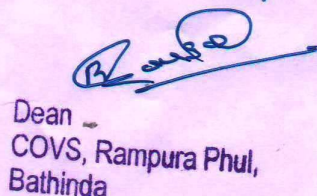 Dean
COVS, Rampura Phul,
Bathinda